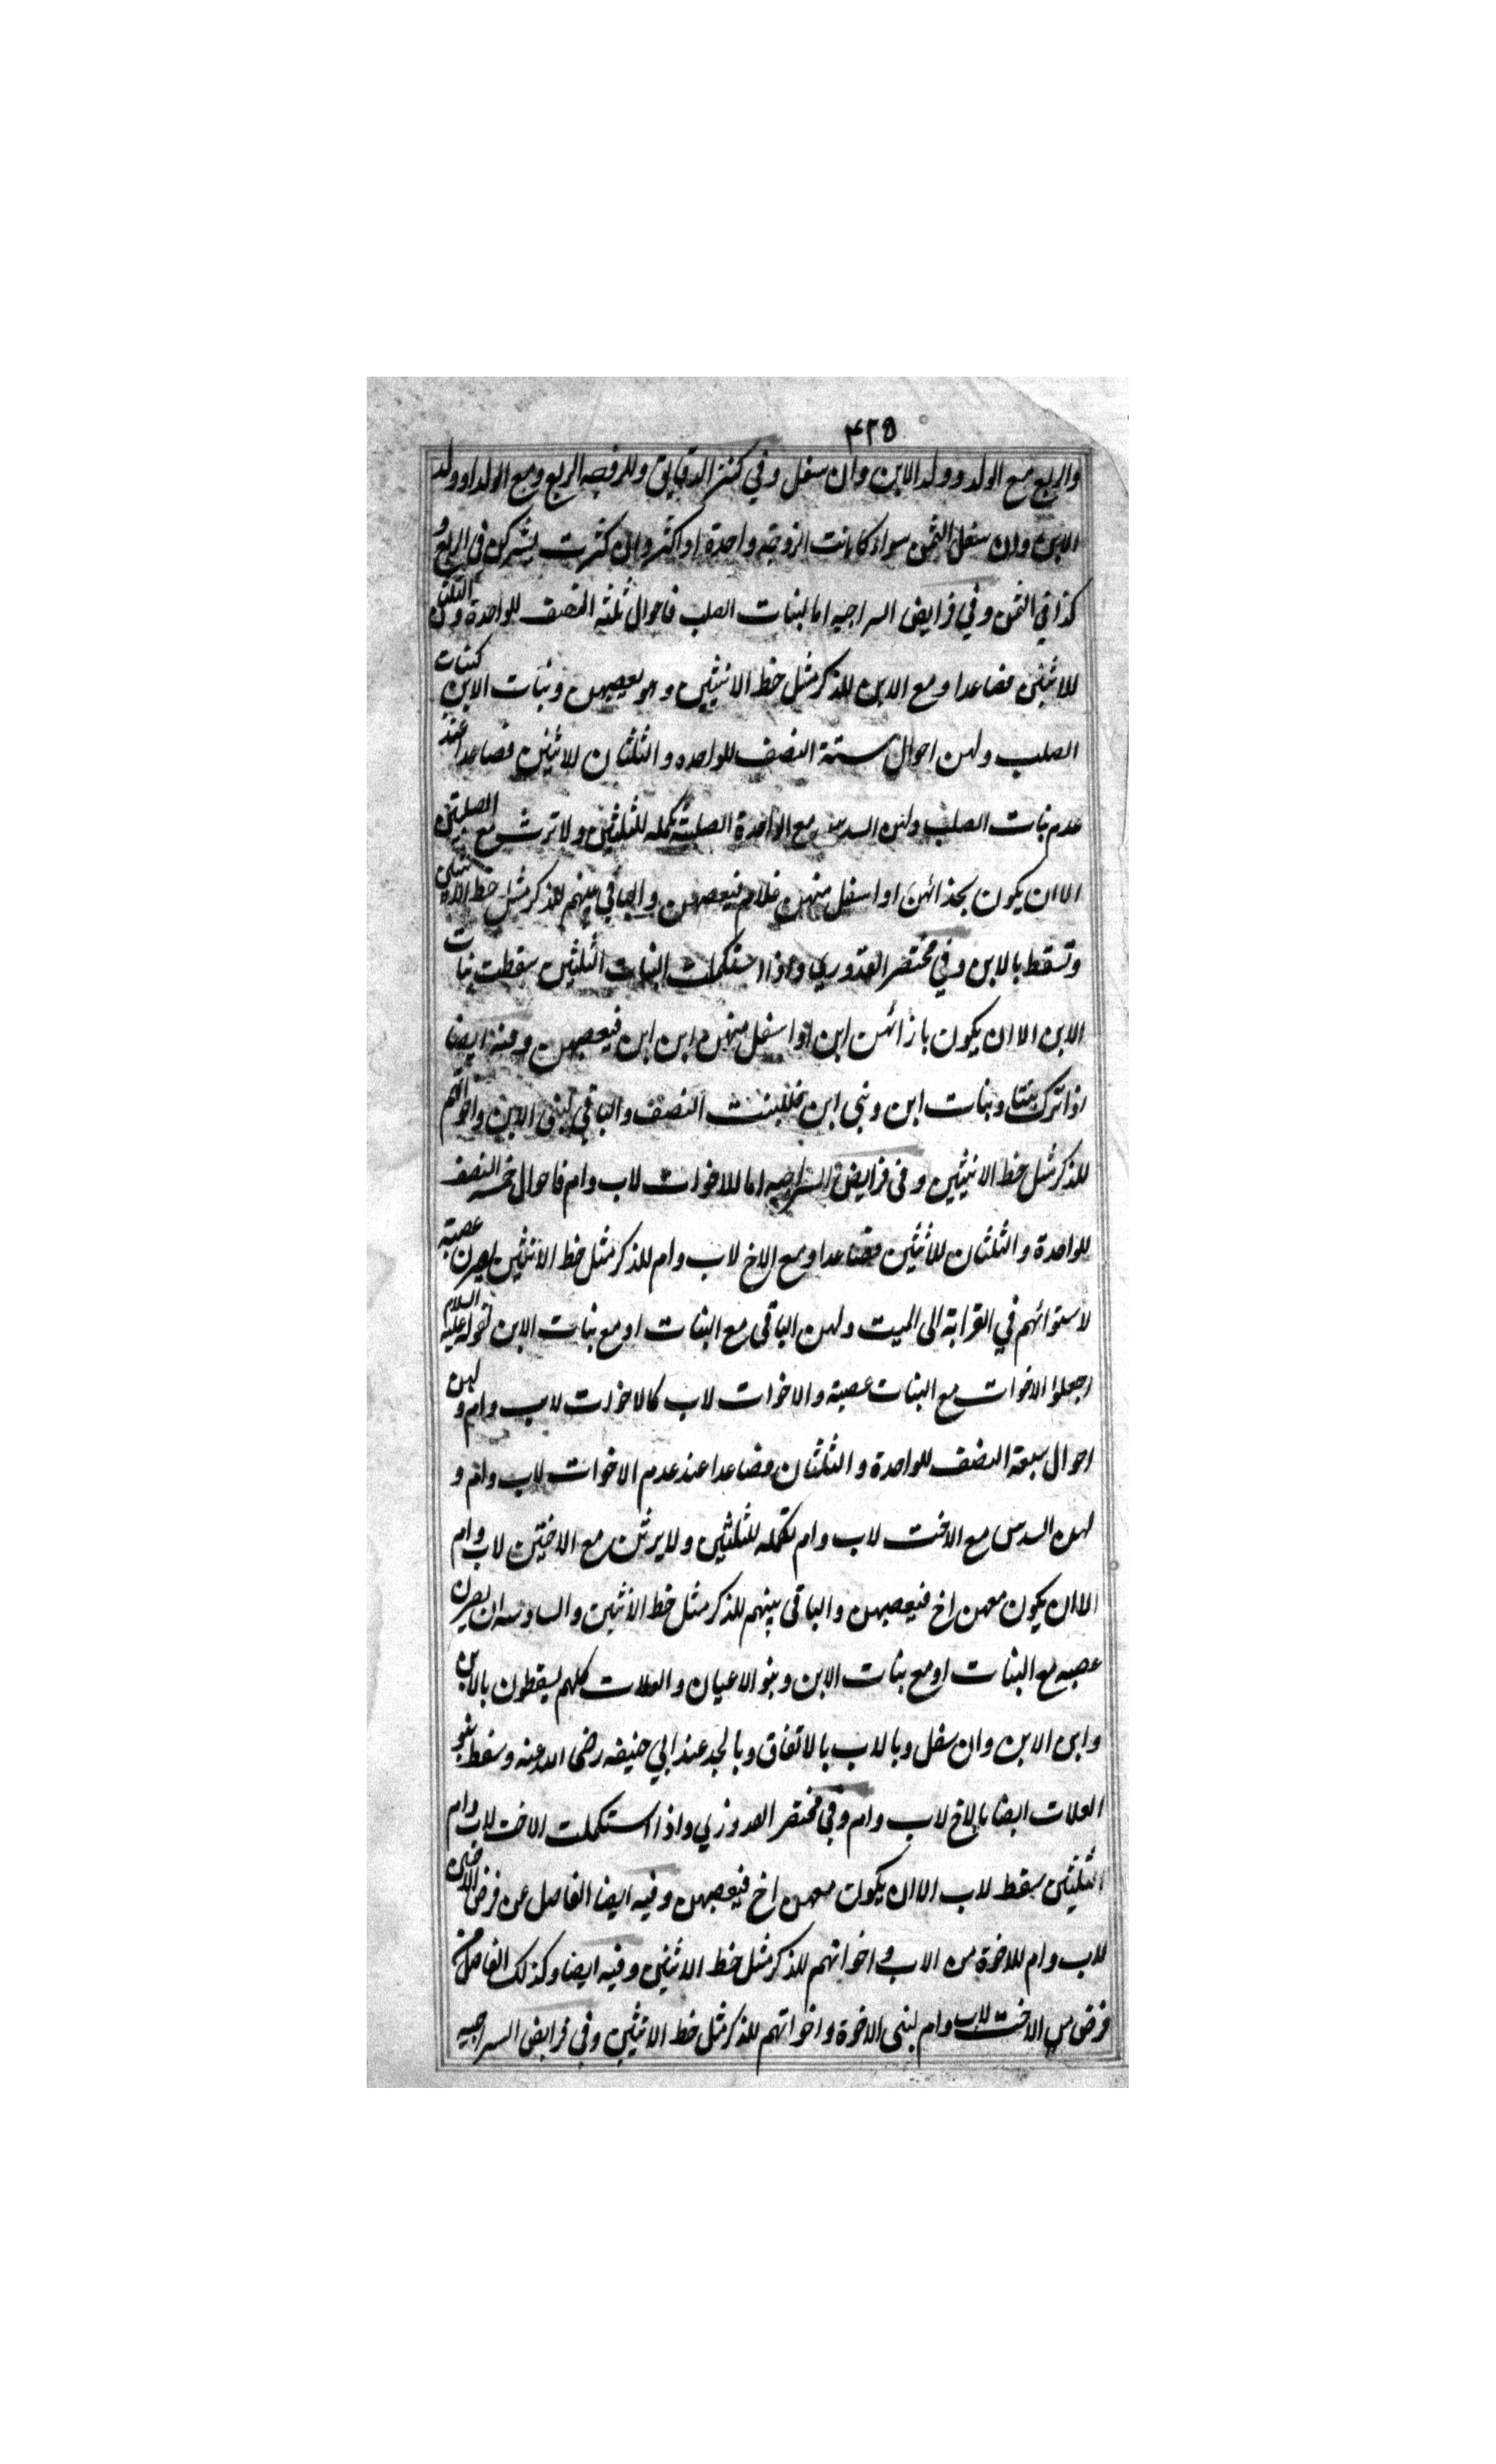 ٤٢٥
والربع مع الولد وولد الابن وان سفل وفي كنز الدقايق وللزوجه الربع ومع الولد او ولد
الابن وان سفل الثمن سواء كانت الزوجه واحدة او اكثر وان كثرت يشتركن في الربع و
كذا في الثمن وفي فرايض السراجيه اما لبنات الصلب فاحوال ثلثه النصف للواحدة والثلثان
للاثنين فصاعدا ومع الابن للذكر مثل حظ الانثيين وهو يعصبهن وبنات الابن كبنات
الصلب ولهن احوال ستة النصف للواحده والثلثان للاثنين فصاعدا عند
عدم بنات الصلب ولهن السدس مع الواحدة الصلبية تكمله للثلثين ولا ترث مع الصلبتين
الا ان يكون بحذائهن او اسفل منهن غلام فيعصبهن والباقي بينهم للذكر مثل حظ الانثيين
وتسقط بالابن وفي مختصر القدوري واذا استكملت البنات الثلثين سقطت بنات
الابن الا ان يكون بازائهن ابن او اسفل منهن ابن ابن فيعصبهن وفيه ايضا
اذا ترك بنتا وبنات ابن وبني ابن فللبنت النصف والباقي لبني الابن واخواتهم
للذكر مثل حظ الانثيين وفي فرايض السراجيه اما للاخوات لاب وام فاحوال خمسه النصف
للواحدة والثلثان للاثنين فصاعدا ومع الاخ لاب وام للذكر مثل حظ الانثيين يصرن عصبة
لاستوائهم في القرابة الى الميت ولهن الباقي مع البنات او مع بنات الابن لقوله عليه السلام
اجعلوا الاخوات مع البنات عصبة والاخوات لاب كالاخوات لاب وام ولهن
احوال سبعة النصف للواحدة والثلثان فصاعدا عند عدم الاخوات لاب وام و
لهن السدس مع الاخت لاب وام تكمله للثلثين ولا يرثن مع الاختين لاب وام
الا ان يكون معهن اخ فيعصبهن والباقي بينهم للذكر مثل حظ الانثيين والسادسه ان يصرن
عصبه مع البنات او مع بنات الابن وبنو الاعيان والعلات كلهم يسقطون بالابن
وابن الابن وان سفل وبالاب بالاتفاق وبالجد عند ابي حنيفه رضى الله عنه وسقط بنو
العلات ايضا بالاخ لاب وام وفي مختصر القدوري واذا استكملت الاخت لاب وام
الثلثين سقط لاب الا ان يكون معهن اخ فيعصبهن وفيه ايضا الفاضل عن فرض الاختين
لاب وام للاخوة من الاب واخواتهم للذكر مثل حظ الانثيين وفيه ايضا وكذلك الفاضل من
فرض الاخت لاب وام لبني الاخوة واخواتهم للذكر مثل حظ الانثيين وفي فرايض السراجيه